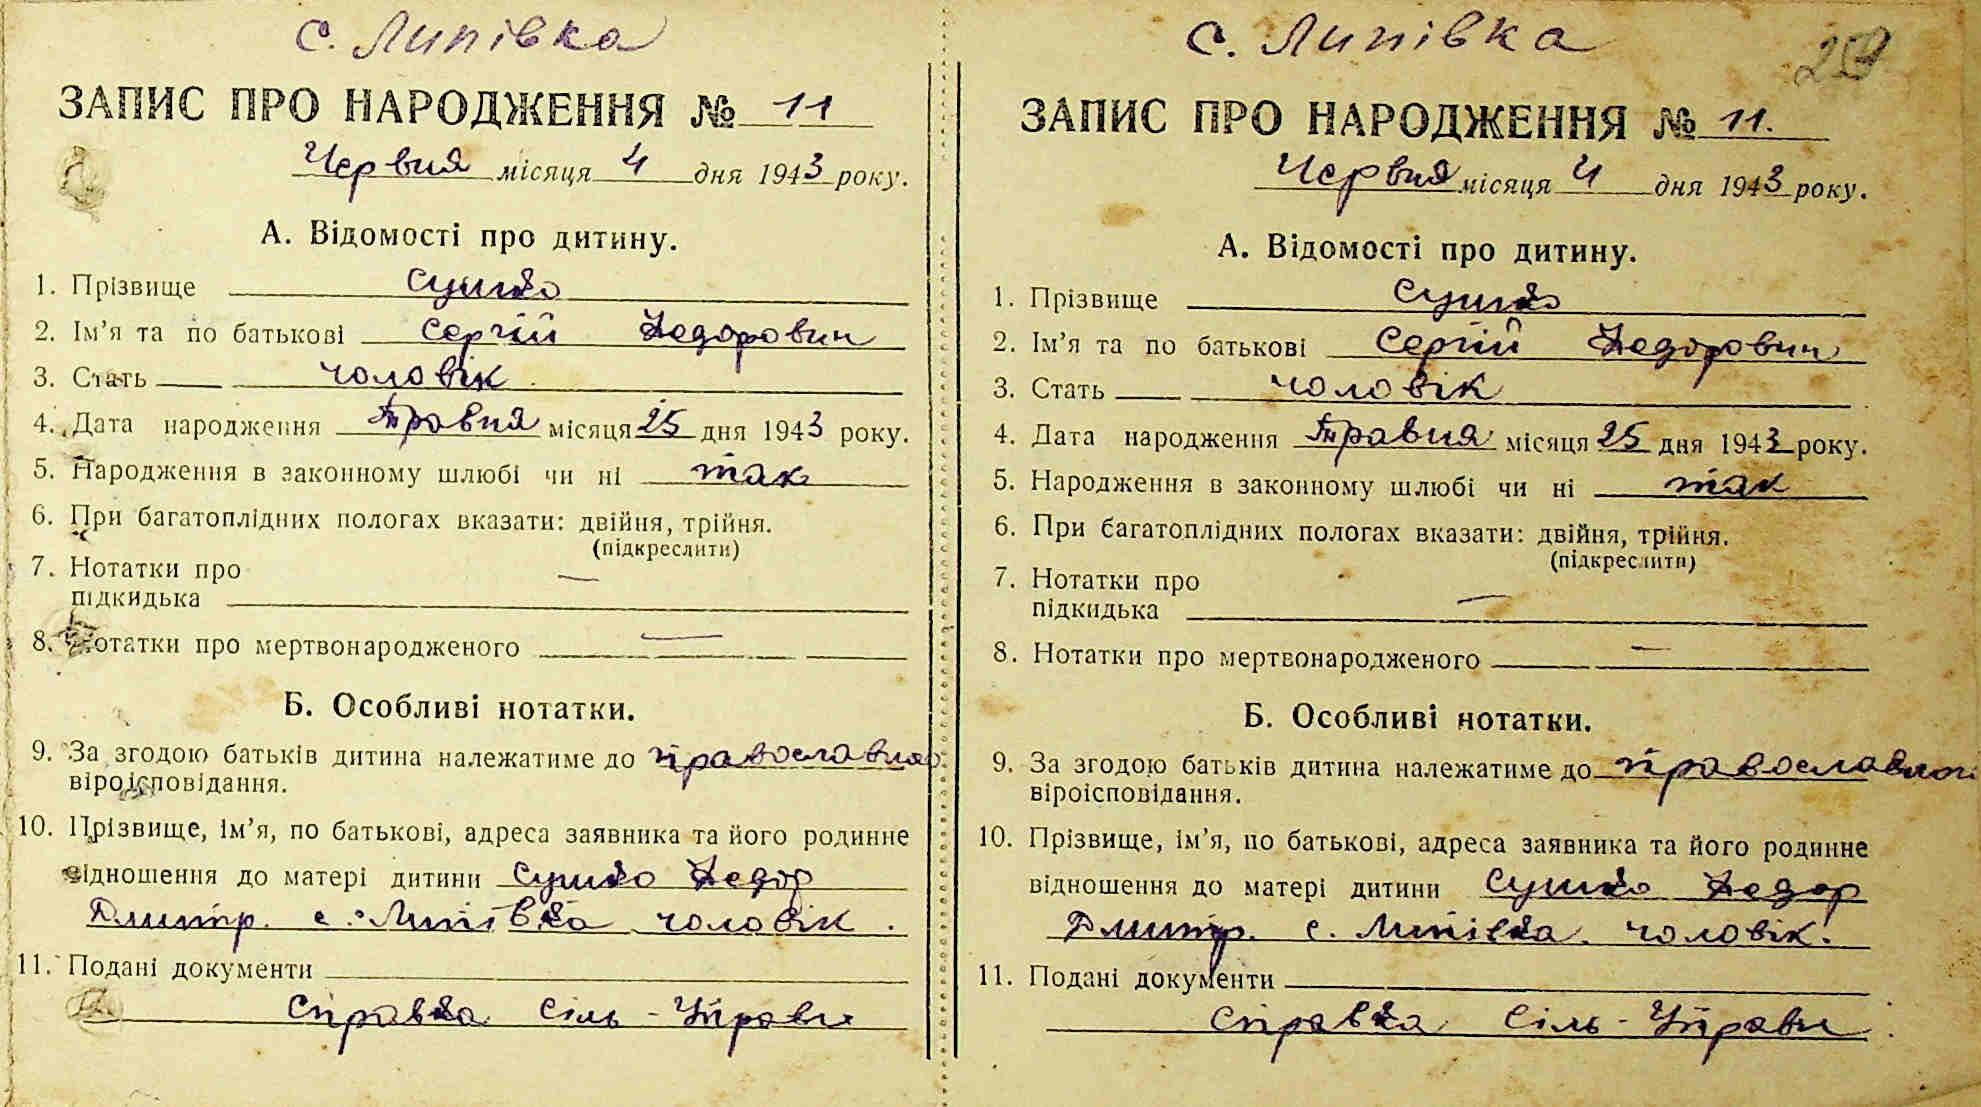 с. Липівка
ЗАПИС ПРО НАРОДЖЕННЯ № 11
Червня місяця 4 дня 1943 року.
А. Відомості про дитину.
1. Прізвище Сушко
2. Ім’я та по батькові Сергій Федорович
3. Стать чоловік
4. Дата народження Травня місяця 25 дня 1943 року.
5. Народження в законному шлюбі чи ні так
6. При багатоплідних пологах вказати: двійня, трійня.
(підкреслити)
7. Нотатки про —
підкидька
8. Нотатки про мертвонародженого —
Б. Особливі нотатки.
9. За згодою батьків дитина належатиме до православно
віроісповідання.
10. Прізвище, ім’я, по батькові, адреса заявника та його родинне
відношення до матері дитини Сушко Федор
Дмитр. с. Липівка чоловік.
11. Подані документи
Справка Сіль-Управи
с. Липівка
259
ЗАПИС ПРО НАРОДЖЕННЯ № 11.
Червня місяця 4 дня 1943 року.
А. Відомості про дитину.
1. Прізвище Сушко
2. Ім’я та по батькові Сергій Федорович
3. Стать чоловік
4. Дата народження Травня місяця 25 дня 1943 року.
5. Народження в законному шлюбі чи ні так
6. При багатоплідних пологах вказати: двійня, трійня.
(підкреслити)
7. Нотатки про —
підкидька
8. Нотатки про мертвонародженого —
Б. Особливі нотатки.
9. За згодою батьків дитина належатиме до православног
віроісповідання.
10. Прізвище, ім’я, по батькові, адреса заявника та його родинне
відношення до матері дитини Сушко Федор
Дмитр. с. Липівка. чоловік.
11. Подані документи
Справка Сіль-Управи